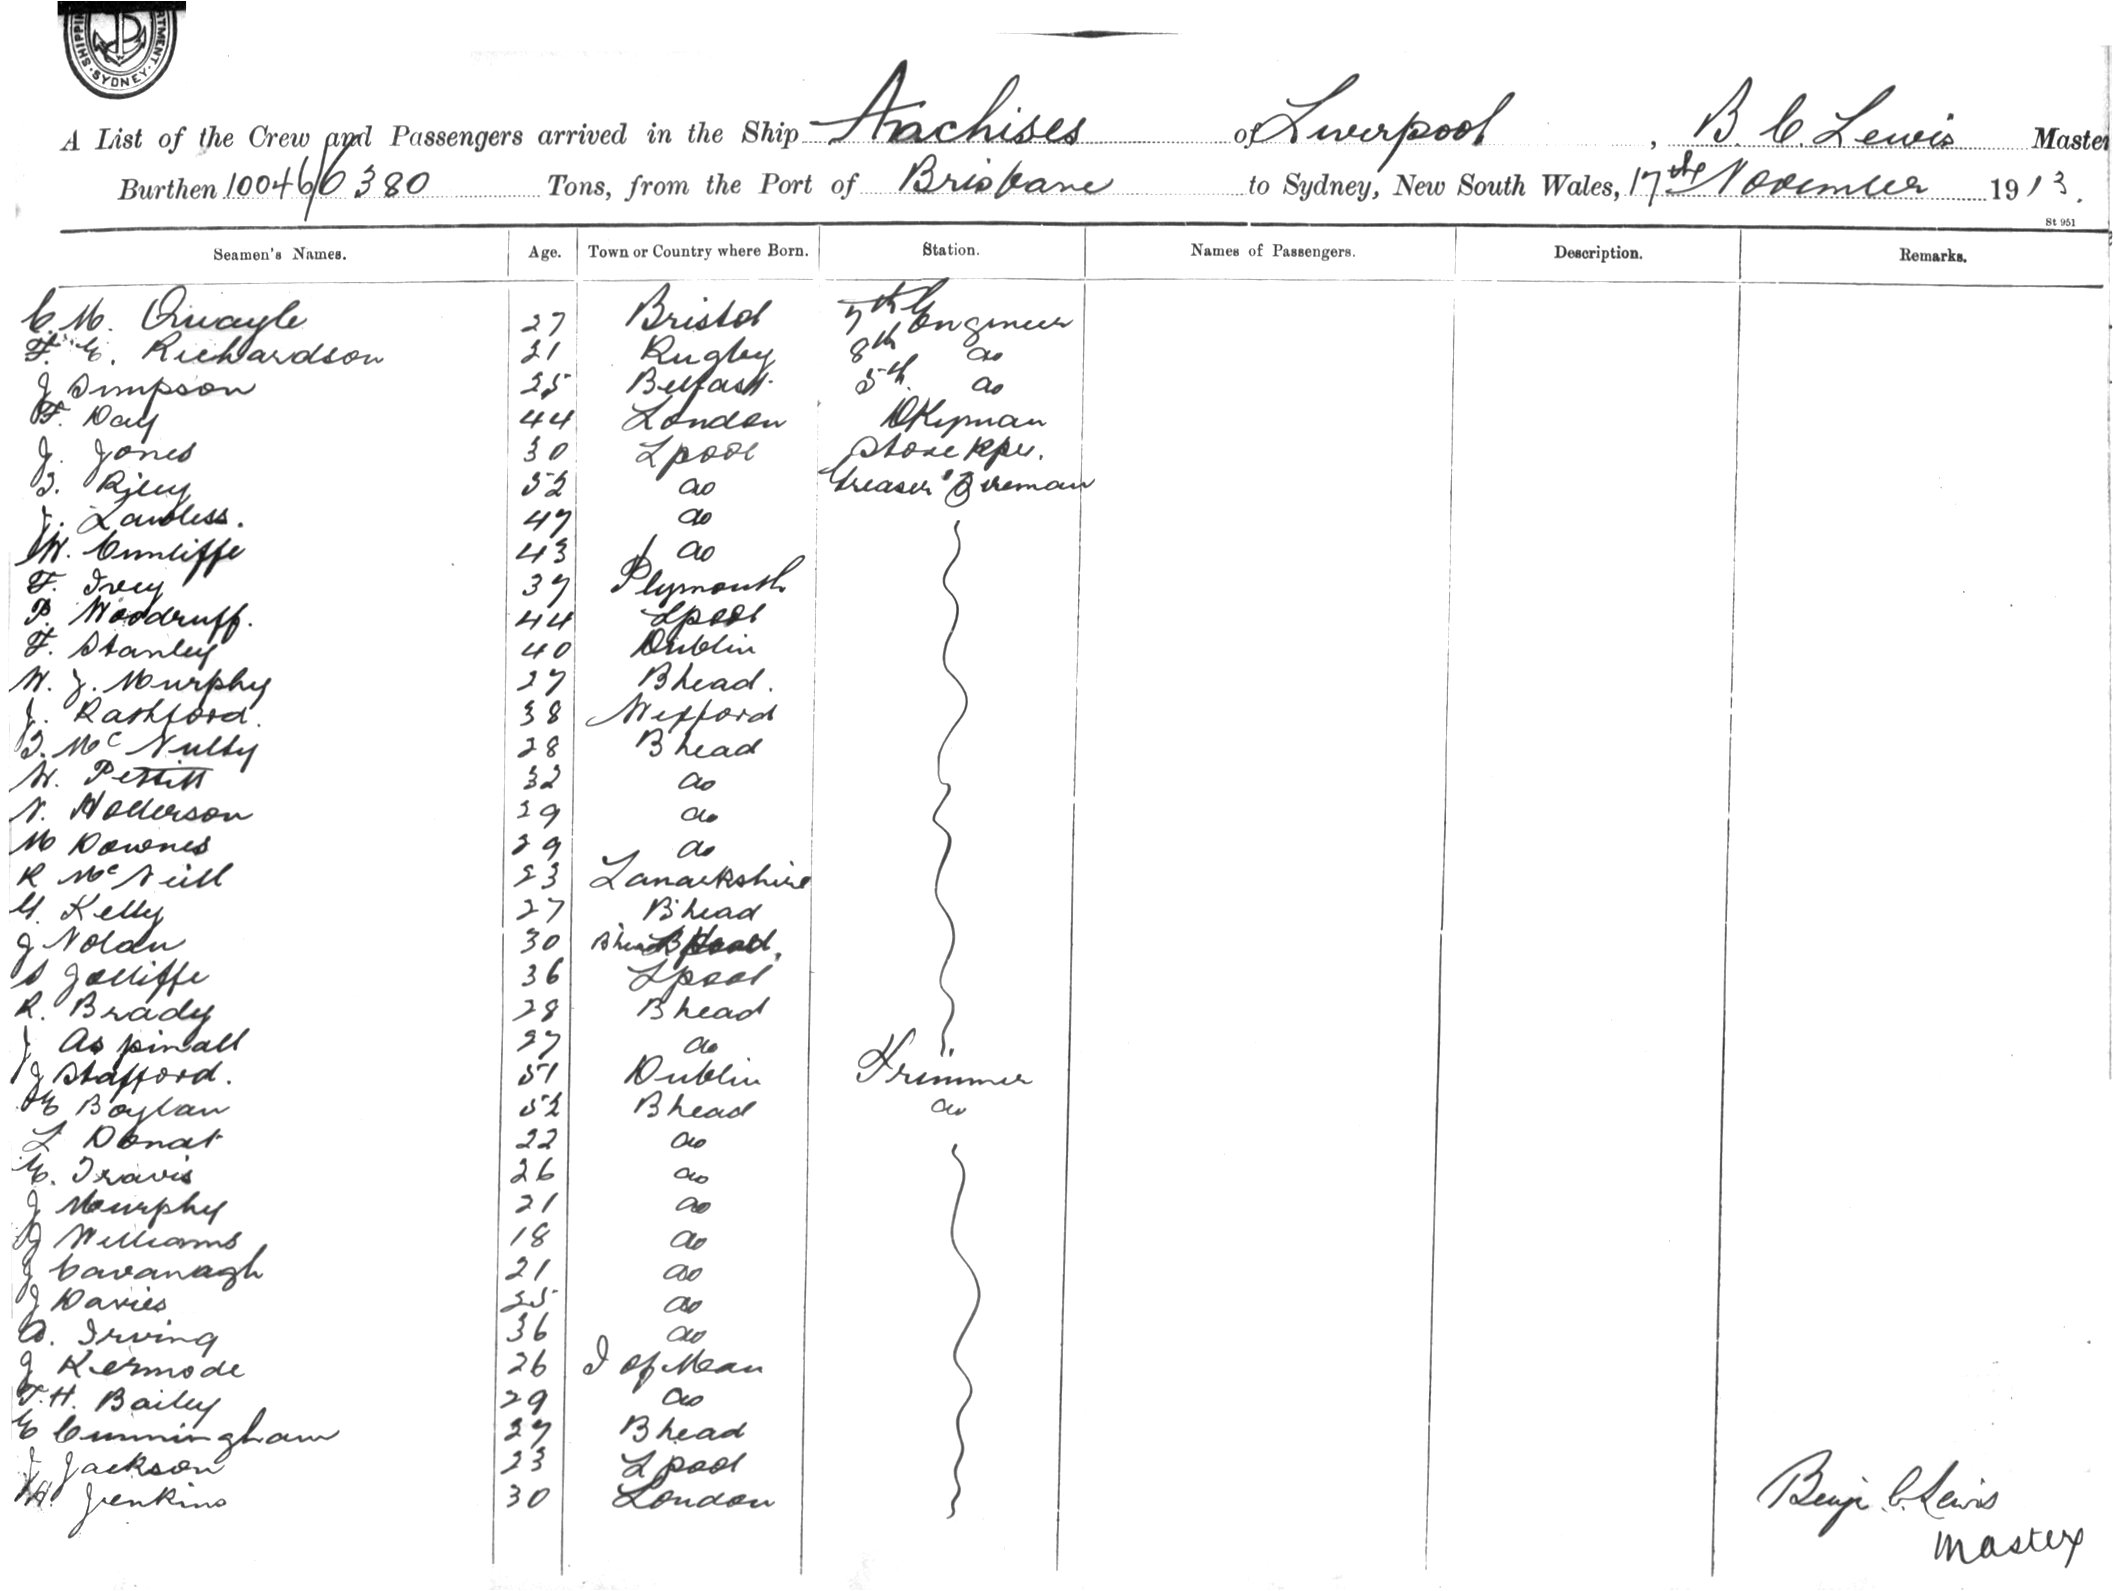 SHIPPING DEPARTMENT SYDNEY
A List of the Crew and Passengers arrived in the Ship Anchises of Liverpool, B. C. Lewis Master
Burthen 10046/6380 Tons, from the Port of Brisbane to Sydney, New South Wales, 17th November 1913.
St 951
Seamen's Names. Age. Town or Country where Born. Station. Names of Passengers. Description. Remarks.
C. M. Quayle 27 Bristol 7th Engineer
F. E. Richardson 21 Rugby 8th do
J Simpson 25 Belfast 5th do
F. Day 44 London DKyman
J. Jones 30 Lpool Storekper.
T. Riley 52 do Greaser Fireman
J. Lawless. 47 do
W. Cunliffe 43 do
F. Ivey 37 Plymouth
P. Woodruff. 44 Lpool
F. Stanley 40 Dublin
W. J. Murphy 27 Bhead.
J. Rashford. 38 Wexford
T. McNulty 28 Bhead
W. Pettitt 32 do
N. 29 do
M Downes 29 do
R McNeill 23 Lanarkshire
G. Kelly 27 Bhead
J Nolan 30 Bhead
S Jolliffe 36 Lpool
R. Brady 28 Bhead
J Aspinall 27 do
J Stafford. 51 Dublin Trimmer
E Boylan 52 Bhead do
L Donat 22 do
E. Travis 26 do
J Murphy 21 do
Williams 18 do
J Cavanagh 21 do
J Davies 25 do
A. Irving 36 do
J Kermode 26 I of Man
T. H. Bailey 29 do
E Cunningham 27 Bhead
J Jackson 23 Lpool
H. Jenkins 30 London
Benj. C. Lewis
Master